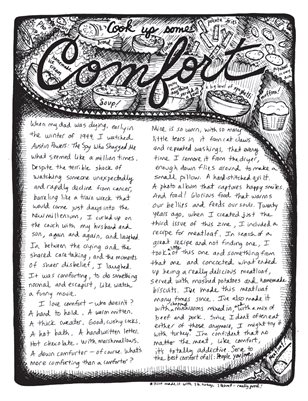 Cook up some
Comfort
Soup!
When my dad was dying, early in
the winter of 1999, I watched
Austin Powers: The Spy Who Shagged Me
what seemed like a million times.
Despite the terrible shock of
watching someone unexpectedly
and rapidly decline from cancer,
barreling like a train wreck that
would come just days into the
New millennium, I curled up on
the couch with my husband and
son, again and again, and laughed.
In between the crying and the
shared care taking, and the moments
of sheer disbelief, I laughed.
It was comforting, to do something
normal and escapist, like watch
a funny movie.
I love comfort - who doesn't?
A hand to hold. A warm mitten.
A thick sweater. Good, cushy socks.
A hot bath. A handwritten letter.
Hot chocolate. With marshmallows.
A down comforter - of course. What's
more comforting than a comforter?
Mine is so worn, with so many
little tears in it from cat claws
and repeated washings, that every
time I remove it from the dryer,
enough down flies around to make a
small pillow. A hand stitched quilt.
A photo album that captures happy smiles.
And food! Glorious food that warms
our bellies and feeds our souls. Twenty
years ago, when I created just the
third issue of this zine, I included a
recipe for meatloaf. In search of a
great recipe and not finding one, I
took a little of this one and something from
that one and concocted what ended
up being a really delicious meatloaf,
served with mashed potatoes and homemade
biscuits. I've made this meatloaf
many times since. I've also made it
with chopped mushrooms mixed in, with a mix of
beef and pork. Since I don't often eat
either of those anymore, I might try it
with turkey. I'm confident that no
matter the meat, like comfort,
it's totally addictive. Here's to
the best comfort of all: